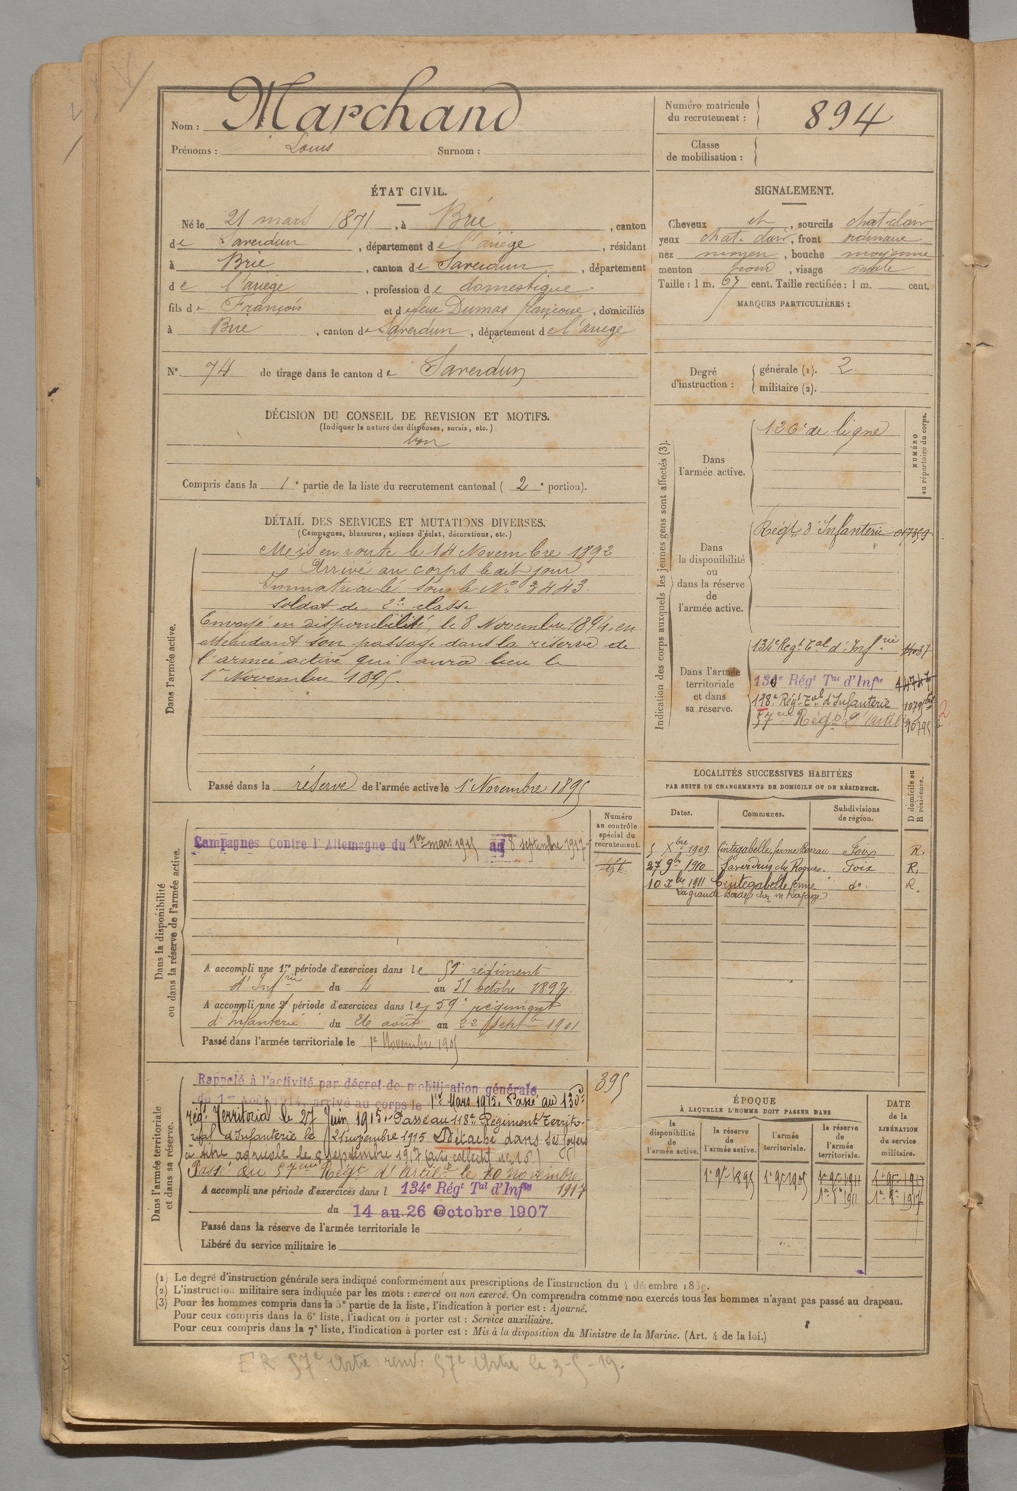 Nom : Marchand
Prénoms : Louis Surnom :
Numéro matricule du recrutement : 894
Classe de mobilisation :
ÉTAT CIVIL.
Né le 21 mars 1871, à Brie, canton
de Saverdun, département de l'ariège, résidant
à Brie, canton de Saverdun, département
de l'ariège, profession de domestique
fils de François et de feue Dumas françoise, domiciliés
à Brie, canton de Saverdun, département de l'ariège
N° 74 de tirage dans le canton de Saverdun
SIGNALEMENT.
Cheveux et, sourcils chat-clair
yeux chat-clair, front ordinaire
nez moyen, bouche moyenne
menton rond, visage ovale
Taille : 1 m. 67 cent. Taille rectifiée : 1 m. cent.
MARQUES PARTICULIÈRES :
Degré d'instruction : générale (1). 2
militaire (2).
DÉCISION DU CONSEIL DE REVISION ET MOTIFS.
(Indiquer la nature des dispenses, sursis, etc.)
bon
Compris dans la 1e partie de la liste du recrutement cantonal (2e portion).
DÉTAIL DES SERVICES ET MUTATIONS DIVERSES.
(Campagnes, blessures, actions d'éclat, décorations, etc.)
Dans l'armée active.
Mis en route le 14 Novembre 1892
Arrivé au corps ledit jour
Immatriculé sous le No 3443.
soldat de 2e classe
Envoyé en disponibilité le 8 Novembre 1894, en
attendant son passage dans la réserve de
l'armée active qui aura lieu le
1er Novembre 1895.
Passé dans la réserve de l'armée active le 1er Novembre 1895
Indication des corps auxquels les jeunes gens sont affectés (3).
NUMÉRO au répertoire du corps.
Dans l'armée active.
126e de ligne
Dans la disponibilité ou dans la réserve de l'armée active.
Régt d'Infanterie
Dans l'armée territoriale et dans sa réserve.
134e Régt Tal d'Infrie
130 Régt Tal d'Infie
118e Régt Tal d'Infanterie
57eme Régt d'Artil
Dans la disponibilité ou dans la réserve de l'armée active.
Numéro au contrôle spécial du recrutement.
Campagnes Contre l'Allemagne du 1er mars 1915 au 8 septembre 1917
A accompli une 1re période d'exercices dans le 59e régiment
d'Infrie du 4 au 31 octobre 1897.
A accompli une 2e période d'exercices dans le 59e régiment
d'Infanterie du 26 août au 22 Septbre 1901
Passé dans l'armée territoriale le 1er Novembre 1905
LOCALITÉS SUCCESSIVES HABITÉES
PAR SUITE DE CHANGEMENTS DE DOMICILE OU DE RÉSIDENCE.
Dates. Communes. Subdivisions de région. D domicile ou R résidence.
5 Xbre 1909 Cintegabelle ferme Foix R.
27 9bre 1910 Saverdun chez Roques Foix R.
10 Xbre 1911 Cintegabelle ferme do R.
la grande Borde chez
Dans l'armée territoriale et dans sa réserve.
395
Rappelé à l'activité par décret de mobilisation générale
du 1er Août 1914, arrivé au corps le 1er Mars 1915. Passé au 130e
rég. Territorial le 27 Juin 1915. Passé au 118e Régiment Territo-
rial d'Infanterie le 21 novembre 1915 Détaché dans ses foyers
à titre agricole le 9 septembre 1917 (avis collectif no 15)
Passé au 57eme Régt d'Artilie le 10 Novembre
1917
A accompli une période d'exercices dans l 134e Régt Tal d'Infie
du 14 au 26 Octobre 1907
Passé dans la réserve de l'armée territoriale le
Libéré du service militaire le
ÉPOQUE À LAQUELLE L'HOMME DOIT PASSER DANS
DATE de la LIBÉRATION du service militaire.
la disponibilité de l'armée active. la réserve de l'armée active. l'armée territoriale. la réserve de l'armée territoriale.
1er 9bre 1895 1er 9bre 1905 1er 9bre 1911 1er 9bre 1917
(1) Le degré d'instruction générale sera indiqué conformément aux prescriptions de l'instruction du 4 décembre 1889.
(2) L'instruction militaire sera indiquée par les mots : exercé ou non exercé. On comprendra comme non exercés tous les hommes n'ayant pas passé au drapeau.
(3) Pour les hommes compris dans la 5e partie de la liste, l'indication à porter est : Ajourné.
Pour ceux compris dans la 6e liste, l'indication à porter est : Service auxiliaire.
Pour ceux compris dans la 7e liste, l'indication à porter est : Mis à la disposition du Ministre de la Marine. (Art. 4 de la loi.)
ER 57e Artie renv. 57e Artie le 3-5-19.